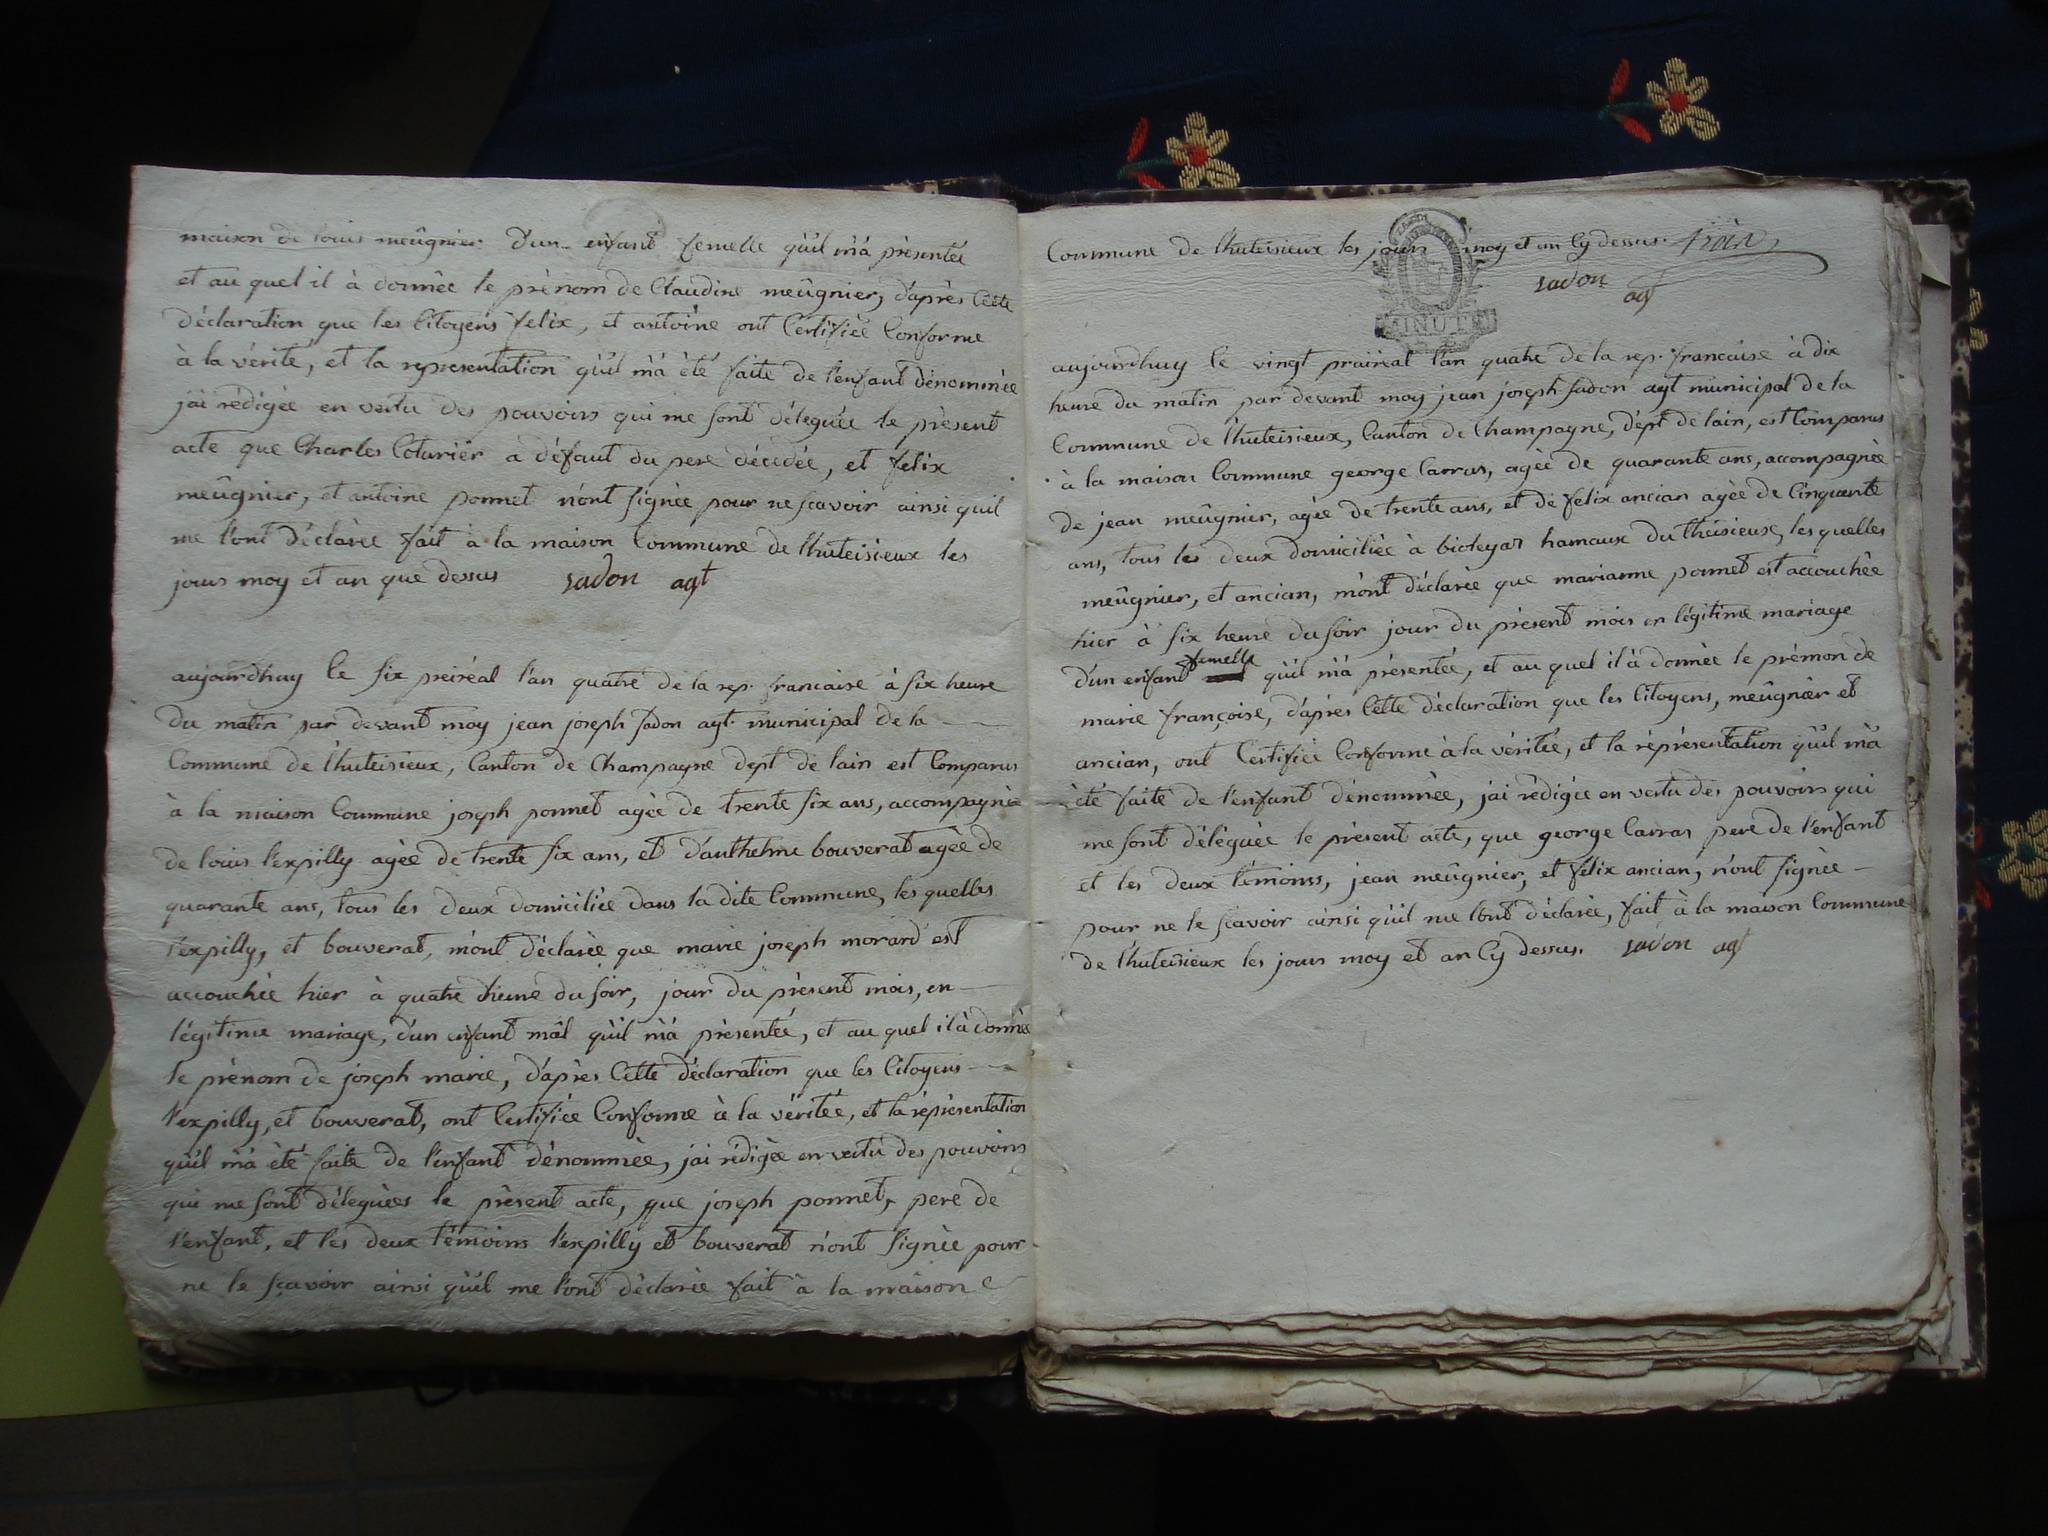 maison de louis meûgnier d'un enfant femelle qu'il m'à prèsentée
et au quel il à donnée le prènom de Claudine meûgnier, d'après Cette
dèclaration que les Citoyens felix, et antoine ont Certifièe Conforme
à la vèrité, et la representation qu'il m'à èté faite de l'enfant dènommèe
j'ai rèdigèe en vertu des pouvoirs qui me sont dèleguèe le prèsent
acte que Charles Coturièr a dèfaut du pere dècèdèe, et felix
meûgnier, et antoine ponnet n'ont signèe pour ne sçavoir ainsi qu'il
me l'ont dèclarèe fait à la maison Commune de lhuteisieux les
jours moy et an que dessus sadon agt
aujourdhuy le six preirèal l'an quatre de la rep. francaise à six heure
du matin par devant moy jean joseph sadon agt. municipal de la
Commune de lhuteisieux, Canton de Champagne dept de lain est Comparus
à la maison Commune joseph ponnet agèe de trente six ans, accompagnèe
de louis l'expilly agèe de trente six ans, et d'anthelme bouverat agèe de
quarante ans, tous les deux domicilièe dans la dite Commune, les quelles
l'expilly, et bouverat, m'ont dèclarèe que marie joseph morard est
accouchèe hier à quatre heure du soir, jour du prèsent mois, en
lègitime mariage, d'un enfant mâl qu'il m'à prèsentèe, et au quel il à donnèe
le prènom de joseph marie, d'après Cette dèclaration que les Citoyens
l'expilly, et bouverat, ont Certifièe Conforme à la vèritèe, et la rèprèsentation
qu'il m'à èté faite de l'enfant dènommèe, j'ai rèdigèe en vertu des pouvoirs
qui me sont dèleguèes le prèsent acte, que joseph ponnet, pere de
l'enfant, et les deux tèmoins l'expilly et bouverat n'ont signèe pour
ne le sçavoir ainsi qu'il me l'ont dèclarèe fait à la maison
Commune de lhuteisieux les jours moy et an Cy dessus.
sadon agt
MINUTE
aujourdhuy le vingt prairèal l'an quatre de la rep. francaise à dix
heure du matin par devant moy jean joseph sadon agt municipal de la
Commune de lhuteisieux, Canton de Champagne, dept de lain, est Comparus
à la maison Commune george Carras, agèe de quarante ans, accompagnèe
de jean meûgnier, agèe de trente ans, et de felix ancian agèe de Cinquante
ans, tous les deux domicilièe à bioleyas hamaux du lhèisieux, les quelles
meûgnier, et ancian, m'ont dèclarèe que marianne ponnet est accouchèe
hier à six heure du soir jour du prèsent mois en lègitime mariage
d'un enfant femelle qu'il m'à prèsentèe, et au quel il à donnèe le prèmon de
marie françoise, d'après Cette dèclaration que les Citoyens, meûgnier et
ancian, ont Certifièe Conforme à la vèritèe, et la rèprèsentation qu'il m'à
èté faite de l'enfant dènommèe, j'ai rèdigèe en vertu des pouvoirs qui
me sont dèlèguèe le prèsent acte, que george Carras pere de l'enfant
et les deux tèmoins, jean meûgnier, et fèlix ancian, n'ont signèe
pour ne le sçavoir ainsi qu'il me l'ont dèclarèe, fait à la maison Commune
de lhuteisieux les jours moy et an Cy dessus. sadon agt